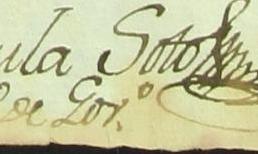 ula Soto
de Gor.º